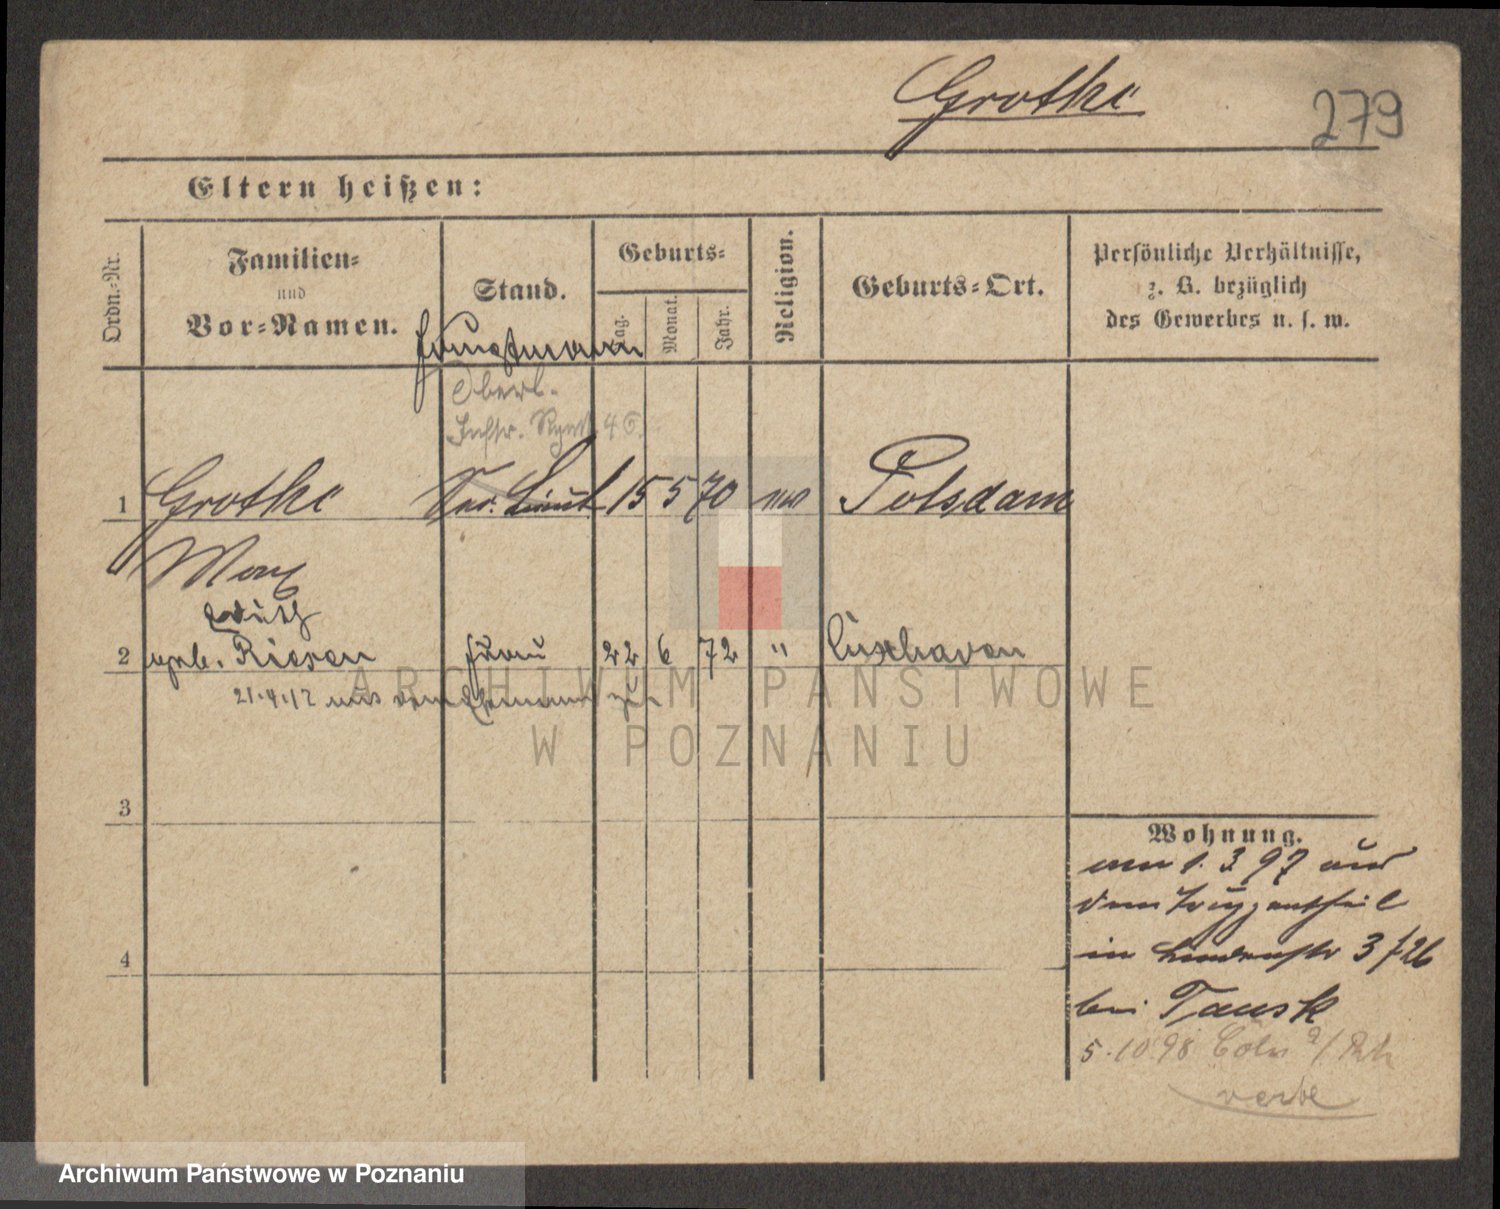 Grothe
279
Eltern heißen:
Ordn.-Nr.
Familien-
und
Vor-Namen.
Stand.
Geburts-
Tag.
Monat.
Jahr.
Religion.
Geburts-Ort.
Persönliche Verhältnisse,
z. B. bezüglich
des Gewerbes u. s. w.
Hauptmann
Oberl.
Inftr. Rgmt. 46.
1 Grothe Sec. Lieut 15 5 70 ev Potsdam
Max
2 geb. Riesen Frau 22 6 72 " Cuxhaven
21.4.12 aus dem
3
4
Wohnung.
am 1. 3 97 aus
dem
in Lindenstr 3 / 26
bei Tausk
5.10.98 Cöln a/Rh
ARCHIWUM PAŃSTWOWE
W POZNANIU
Archiwum Państwowe w Poznaniu